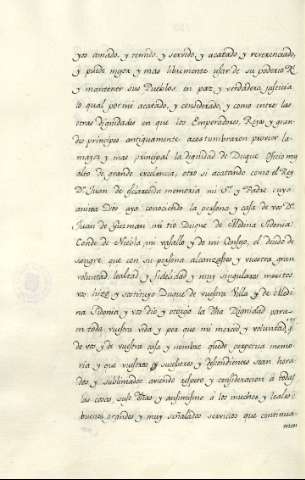 yor amado, y temido, y servido, y acatado y reverenciado,
y pueda mejor y mas libremente usar de su poderio R.
y mantener sus Pueblos en paz y verdadera justicia
lo qual por mi acatado, y considerado, y como entre las
otras dignidades en que los Emperadores, Reyes, y gran-
des principes antiguamente acostumbraron proveer la
mayor y mas principal la dignidad de Duque oficio muy
alto de grande excelencia, otro si acatando como el Rey
Dn. Juan de esclarecida memoria mi Sr. y Padre cuya
anima Dios aya conociendo la persona y casa de vos Dn.
Juan de Guzman mi tio Duque de Medina Sidonia
Conde de Niebla mi vasallo y de mi Consejo, el deudo de
sangre que en su persona alcanzabays y vuestra gran
voluntad lealtad y fidelidad y muy singulares meritos
vos hizo y Duque de vuestra Villa y de Me-
dina Sidonia, y vos dio y otorgó la dha Dignidad para
en toda vuestra vida y por que mi merced y voluntad, q.
de vos y de vuestra casa y nombre quede perpetua memo-
ria y que vuestros subcesores, y descendientes sean honra-
dos y sublimados aviendo respeto y consideracion á todas
las cosas suso dhas y asimismo á los muchos y leales é
buenos, grandes y muy señalados servicios que continua-
men